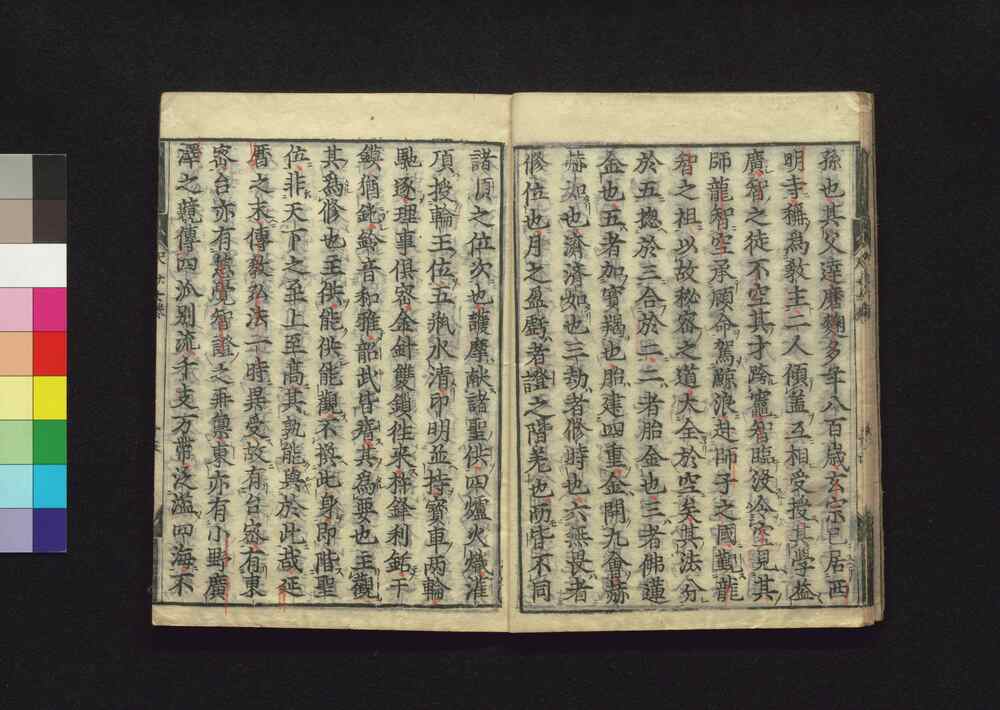 孫也其父達磨麹多年八百歳玄宗已居西
明寺稱為教主二人傾蓋互相受授其學益
廣智之徒不空其才跨竈智臨沒令空見其
師龍智空承顧命駕鯨浪赴師子之國覲龍
智之祖以故秘密之道大全於空矣其法分
於五揔於三合於二二者胎金也三者佛蓮
金也五者加寶羯也胎建四重金開九會
如也濟濟如也三劫者修時也六無畏者
修位也月之盈虧者證之階差也而皆不同
諸頂之位次也護摩献諸聖供四爐火熾灌
頂授輪王位五瓶水清印明並持寶車兩輪
馳逐理事俱密金針雙鎖徃來杵鋒利鉐干
鏌猶鈍鈴音和雅韶武皆瘖其為要也主觀
其為修也主供能供能觀不換此身即階聖
位非天下之至上至高其孰能與於此哉延
暦之末傳教弘法一時異受故有台密有東
密台亦有慈覺智證之再興東亦有小野廣
澤之競傳四派別流千支万常泛濫四海不